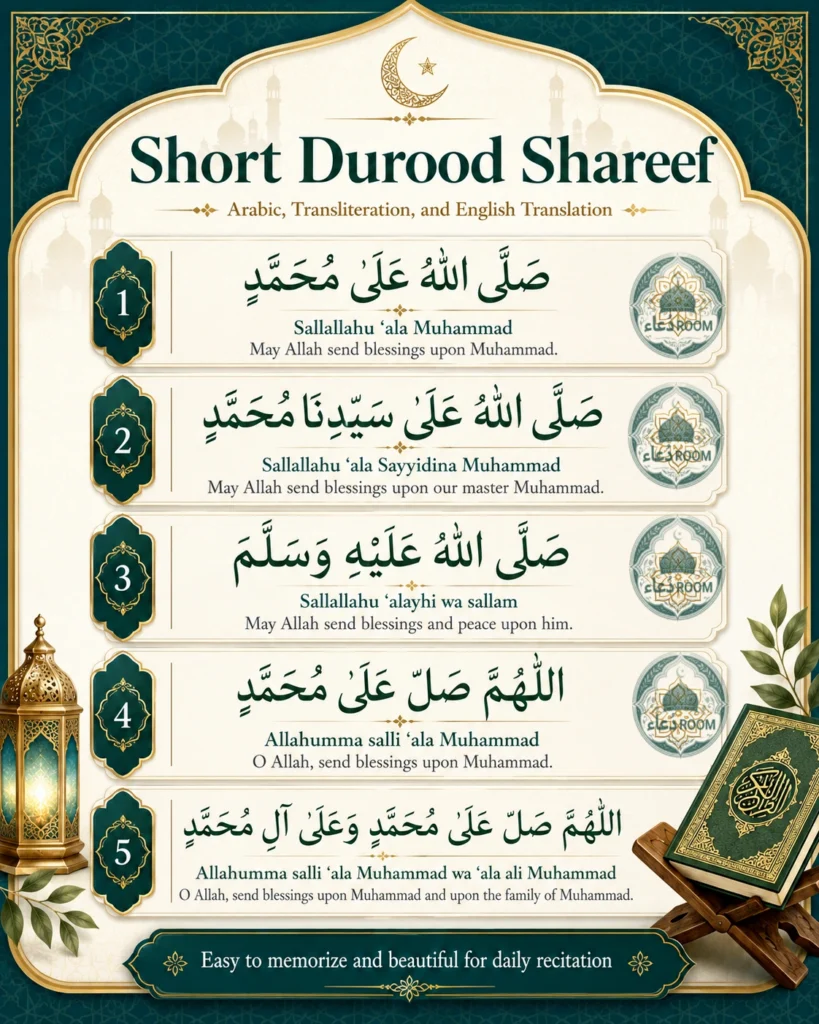 Short Durood Shareef
Arabic, Transliteration, and English Translation
1
صَلَّى اللهُ عَلَىٰ مُحَمَّدٍ
Sallallahu ‘ala Muhammad
May Allah send blessings upon Muhammad.
دعاء ROOM
2
صَلَّى اللهُ عَلَىٰ سَيِّدِنَا مُحَمَّدٍ
Sallallahu ‘ala Sayyidina Muhammad
May Allah send blessings upon our master Muhammad.
دعاء ROOM
3
صَلَّى اللهُ عَلَيْهِ وَسَلَّمَ
Sallallahu ‘alayhi wa sallam
May Allah send blessings and peace upon him.
دعاء ROOM
4
اللّٰهُمَّ صَلّ عَلَىٰ مُحَمَّدٍ
Allahumma salli ‘ala Muhammad
O Allah, send blessings upon Muhammad.
دعاء ROOM
5
اللّٰهُمَّ صَلّ عَلَىٰ مُحَمَّدٍ وَعَلَىٰ آلِ مُحَمَّدٍ
Allahumma salli ‘ala Muhammad wa ‘ala ali Muhammad
O Allah, send blessings upon Muhammad and upon the family of Muhammad.
Easy to memorize and beautiful for daily recitation